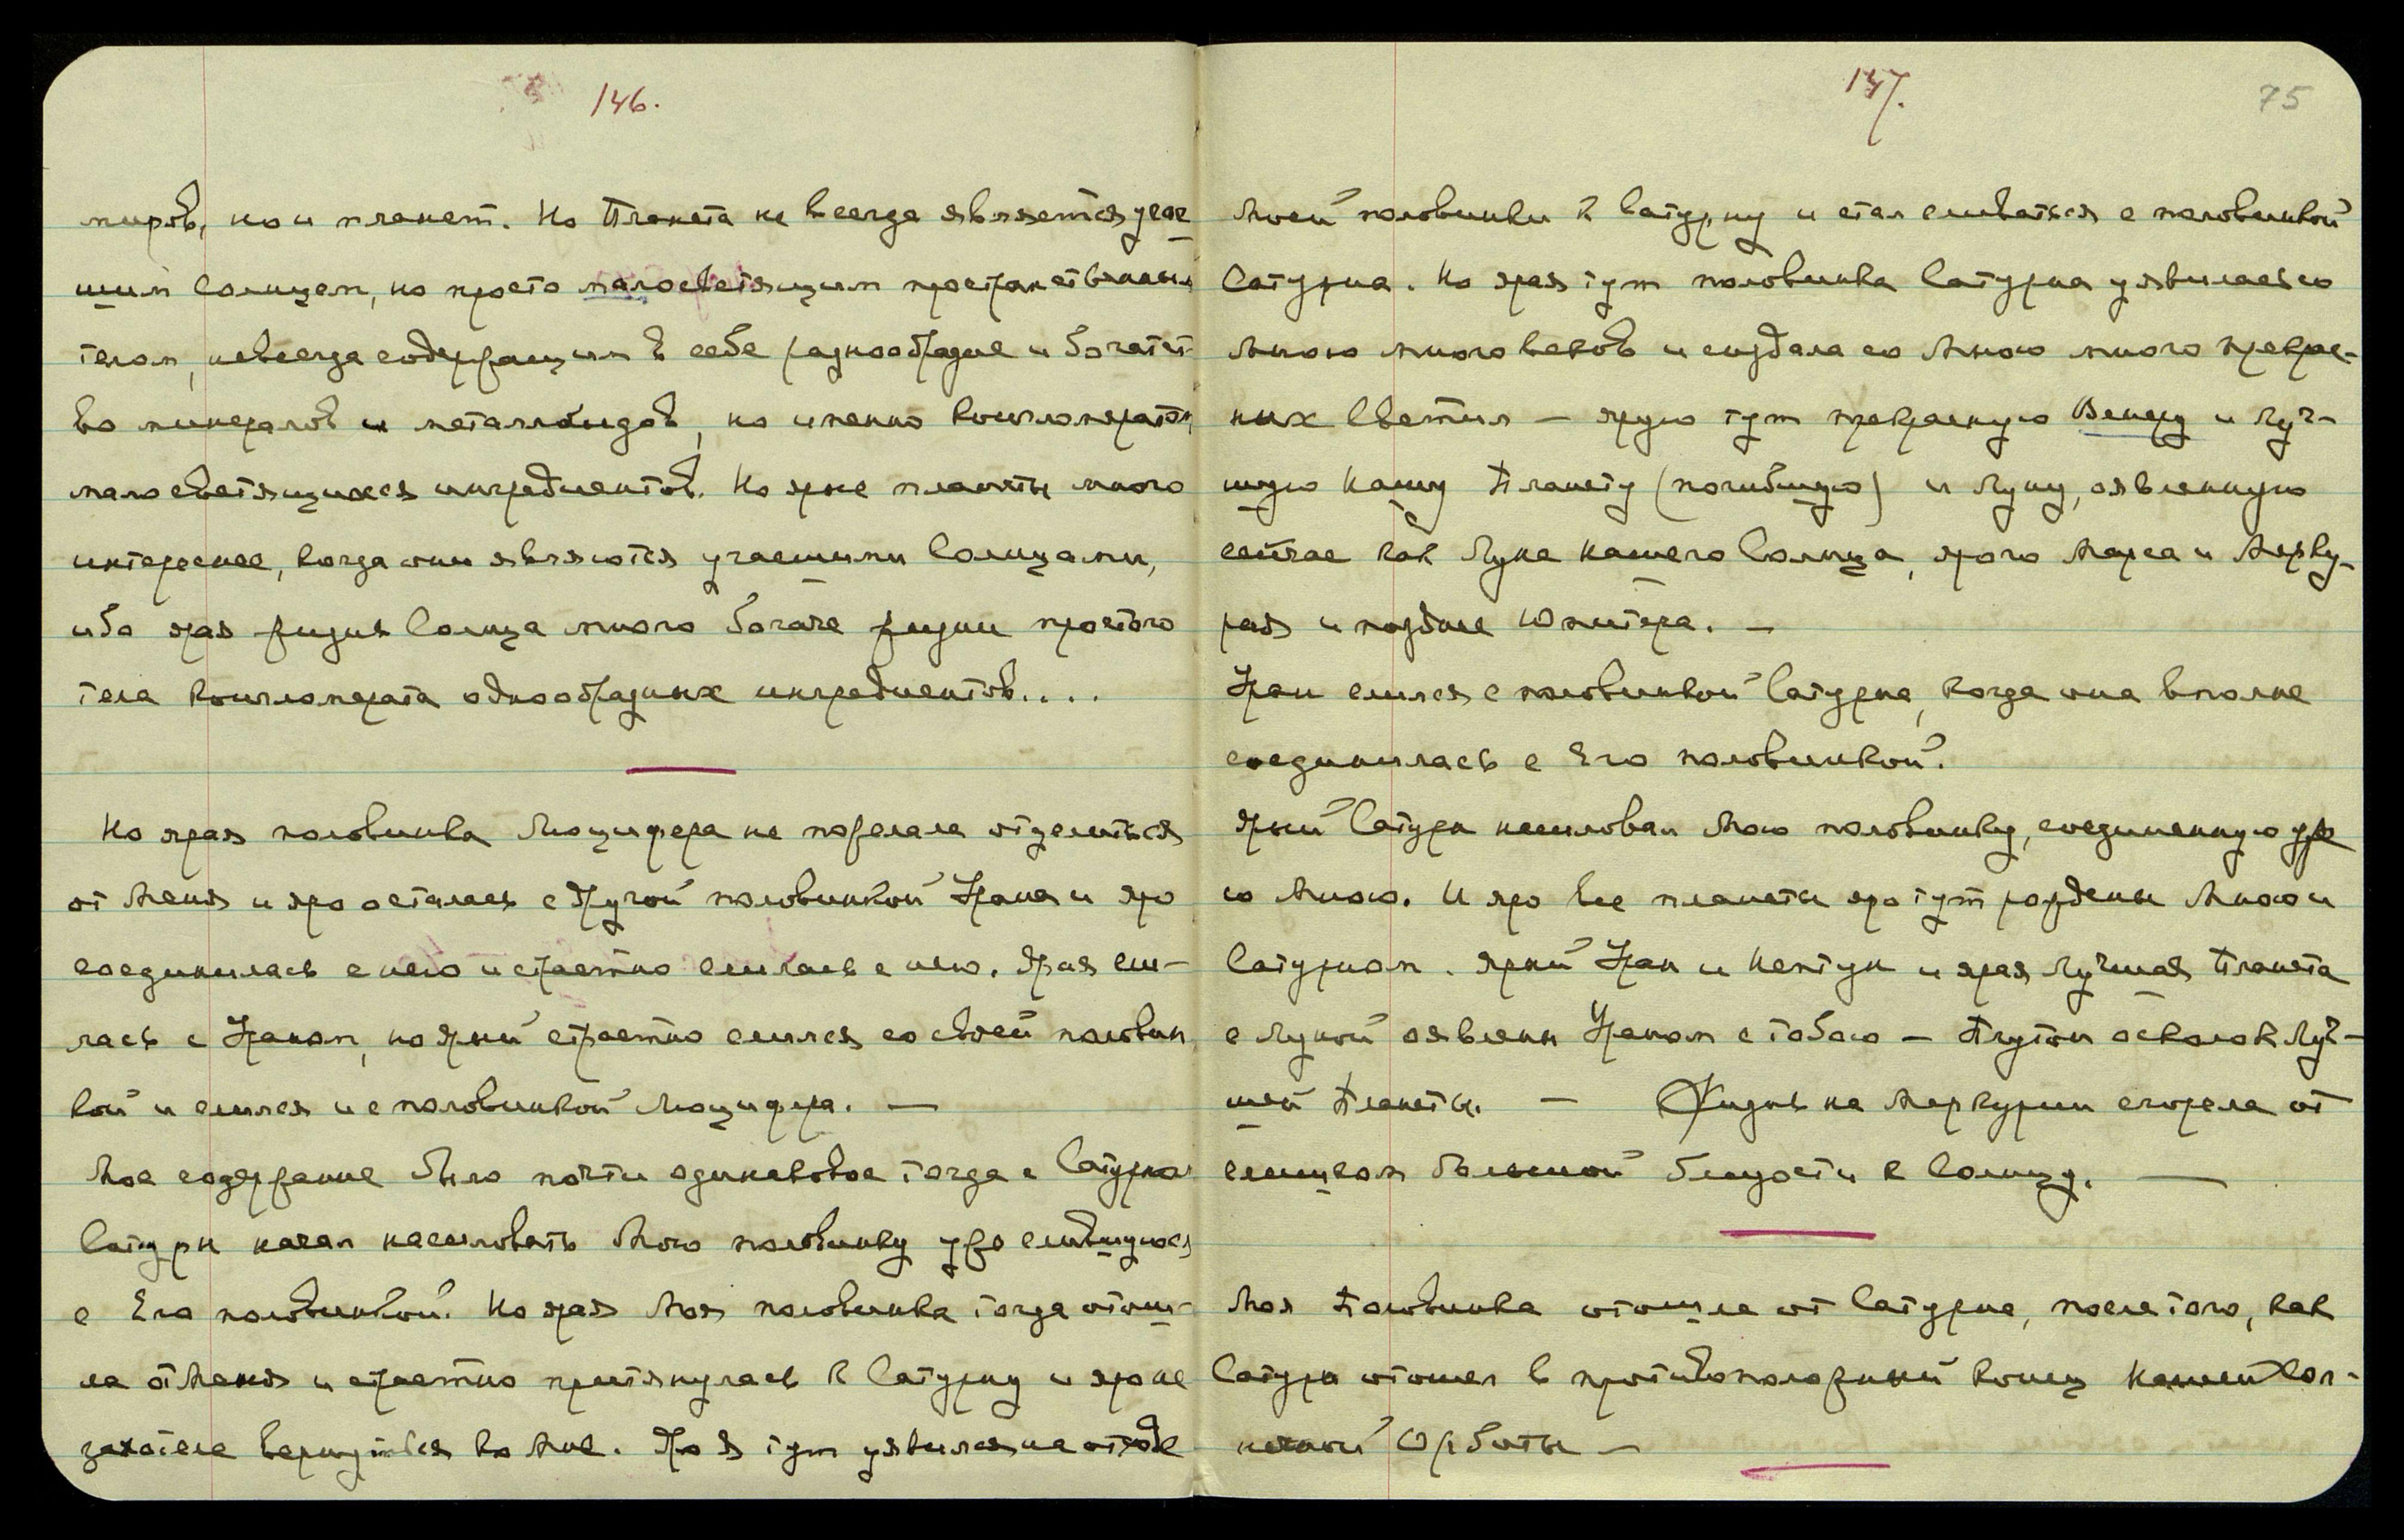 146.
миров, но и планет. Но Планета не всегда является угас
шим Солнцем, но просто малосветящим пространственным
телом, невсегда содержащим в себе разнообразие и богатст
во минералов и металлоидов, но именно конгломератом
малосветящихся ингредиентов. Но ярые планеты много
интереснее, когда они являются угасшими Солнцами,
ибо ярая жизнь Солнца много богаче жизни простого
тела конгломерата однообразных ингредиентов....
Но ярая половинка Люцифера не пожелала отделиться
от Меня и яро осталась с другой половинкой Урана и яро
соединилась с нею и страстно слилась с нею. Ярая сли-
лась с Ураном, но Ярый страстно слился со своей половин
кой и слился и с половинкой Люцифера. —
Мое содержание было почти одинаковое тогда с Сатурном
Сатурн начал насиловать Мою половинку уже слившуюся
с Его половинкой. Но ярая Моя половинка тогда отош-
ла от Меня и страстно притянулась к Сатурну и яро не
захотела вернуться ко Мне. Но Я тут уявился на отходе
147.
75
Моей половинки к Сатурну и стал сливаться с половинкой
Сатурна. Но ярая тут половинка Сатурна уявилась со
Мною много веков и создала со Мною много прекрас-
ных Светил — ярую тут прекрасную Венеру и Луч-
шую Нашу Планету (погибшую) и Луну, оявленную
сейчас как Луна нашего Солнца, ярого Марса и Мерку-
рия и позднее Юпитера. —
Уран слился с половинкой Сатурна, когда она вполне
соединилась с Его половинкой.
Ярый Сатурн насиловал Мою половинку, соединенную уже
со Мною. И яро все планеты яро тут рождены Мною и
Сатурном. Ярый Уран и Нептун и ярая Лучшая Планета
с Луной оявлены Ураном с тобою — Плутон осколок Луч-
шей Планеты. — Жизнь на Меркурии сгорела от
слишком большой близости к Солнцу. —
Моя Половинка отошла от Сатурна, после того, как
Сатурн отошел в противоположный конец Нашей Сол-
нечной Орбиты —